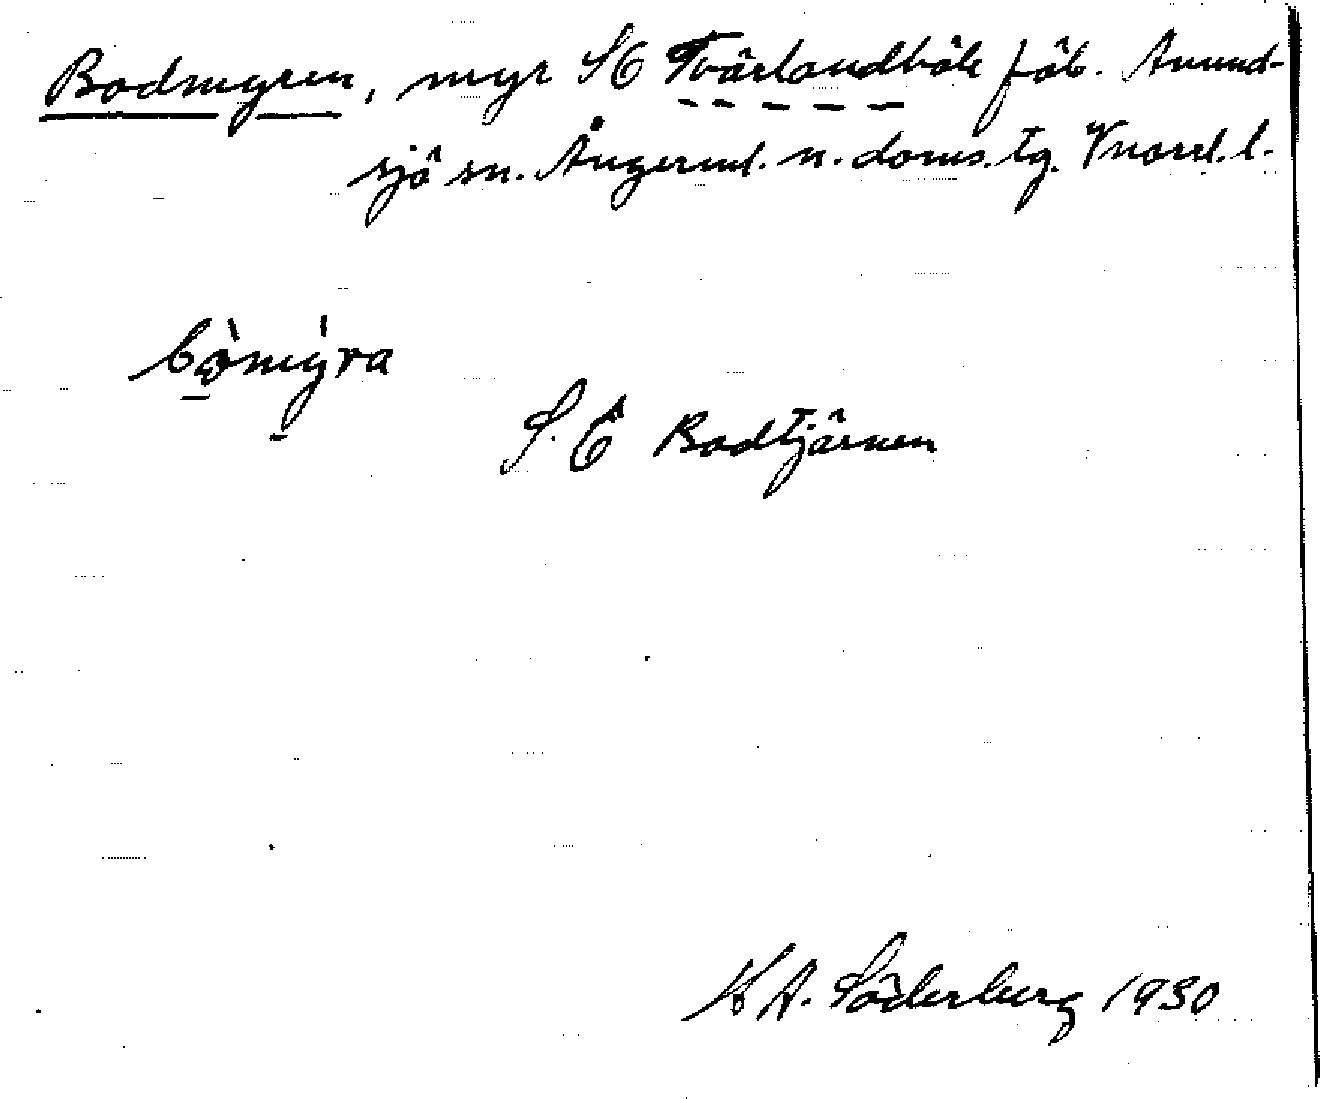 Bodmyren, myr SO Tvärlandböle fäb. Anund-
sjö sn. Ångerml. n. doms. tg. Vnorrl. l.
S. Ö Bodtjärnen
K A. Söderberg 1930